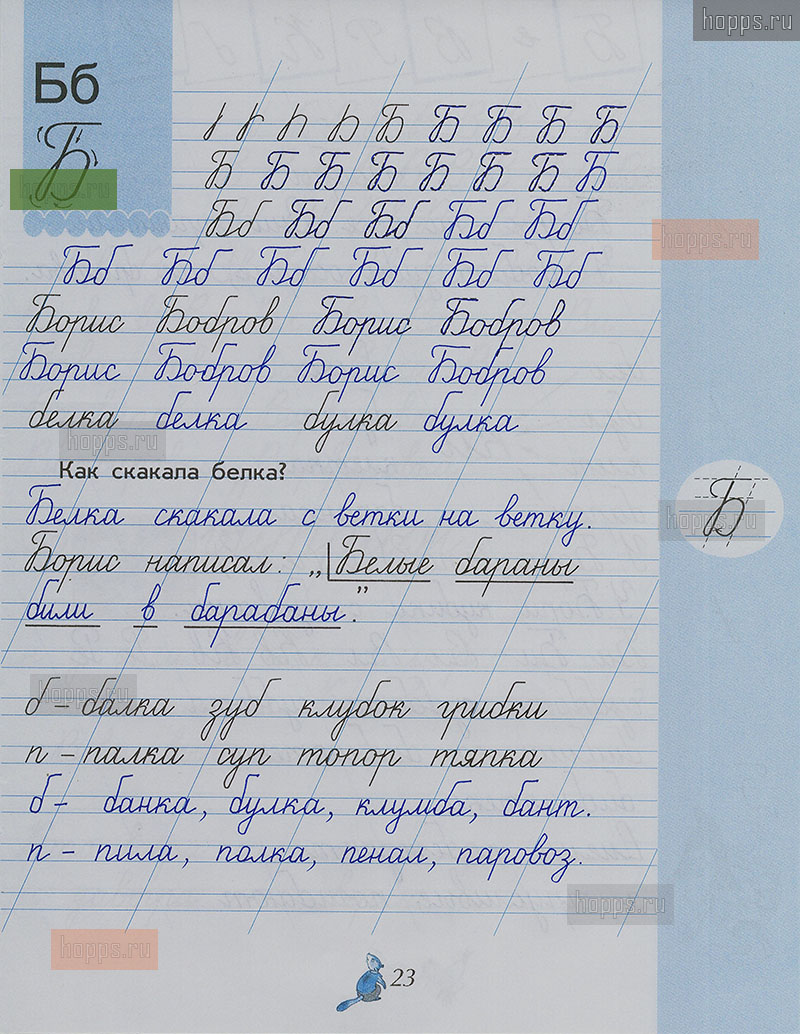 hopps.ru
Бб
Б
hopps.ru
Б Б Б Б Б
Б Б Б Б Б Б Б Б
Бб Бб Бб Бб Бб
hopps.ru
Бб Бб Бб Бб Бб Бб
Борис Бобров Борис Бобров
Борис Бобров Борис Бобров
белка белка булка булка
hopps.ru
Как скакала белка?
Белка скакала с ветки на ветку.
Б
hopps.ru
Борис написал: „Белые бараны
били в барабаны.”
hopps.ru
б – балка зуб клубок грибки
п – палка суп топор тяпка
б – банка, булка, клумба, бант.
п – пила, полка, пенал, паровоз.
hopps.ru
hopps.ru
23